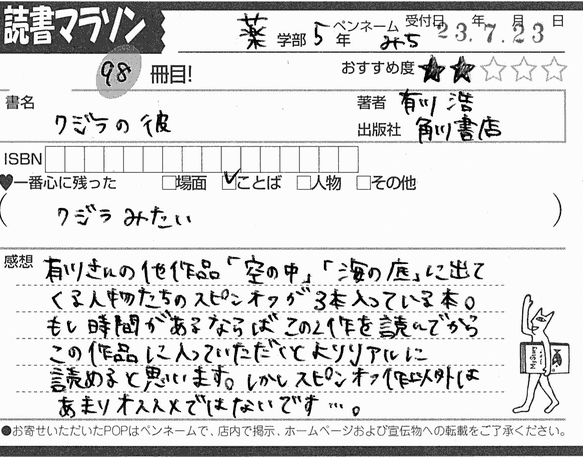 読書マラソン
薬 学部 5 年 ペンネーム みち 受付日 23年7月23日
98 冊目! おすすめ度 ★★☆☆☆
書名 クジラの彼
著者 有川 浩
出版社 角川書店
ISBN
♥一番心に残った □場面 ☑ことば □人物 □その他
( クジラみたい )
感想 有川さんの他作品「空の中」「海の底」に出て
くる人物たちのスピンオフが3本入っている本。
もし時間があるならばこの2作を読んでから
この作品に入っていただくとよりリアルに
読めると思います。しかしスピンオフ作以外は
あまりオススメではないです…。
●お寄せいただいたPOPはペンネームで、店内で掲示、ホームページおよび宣伝物への転載をご了承ください。